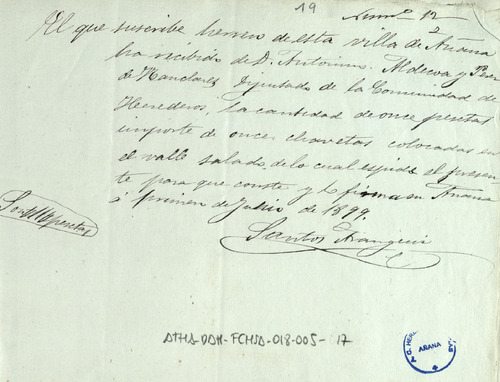 19
Num.º 12
El que suscribe herrero de esta villa de Añana
ha recibido de D. Antonino Moldecoa y
de Nanclares Diputado de la Comunidad de
Herederos, la cantidad de once pesetas
importe de once chavetas colocadas en
el valle salado de lo cual espide el presen
te para que conste y lo firma en Añana
á primero de Julio de 1899.
Santos
Son 11 pesetas
ATHA-DAH-FCHSA-018-005-17
AÑANA